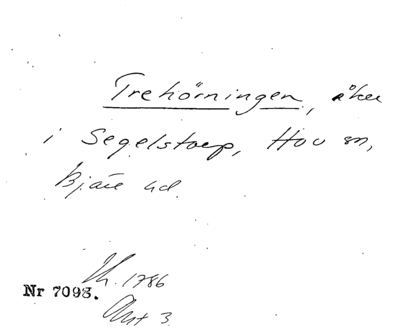 Trehörningen, åker
i Segelstorp, Hov sn,
Bjäre hd.
1786
Nr 7098.
Akt 3.